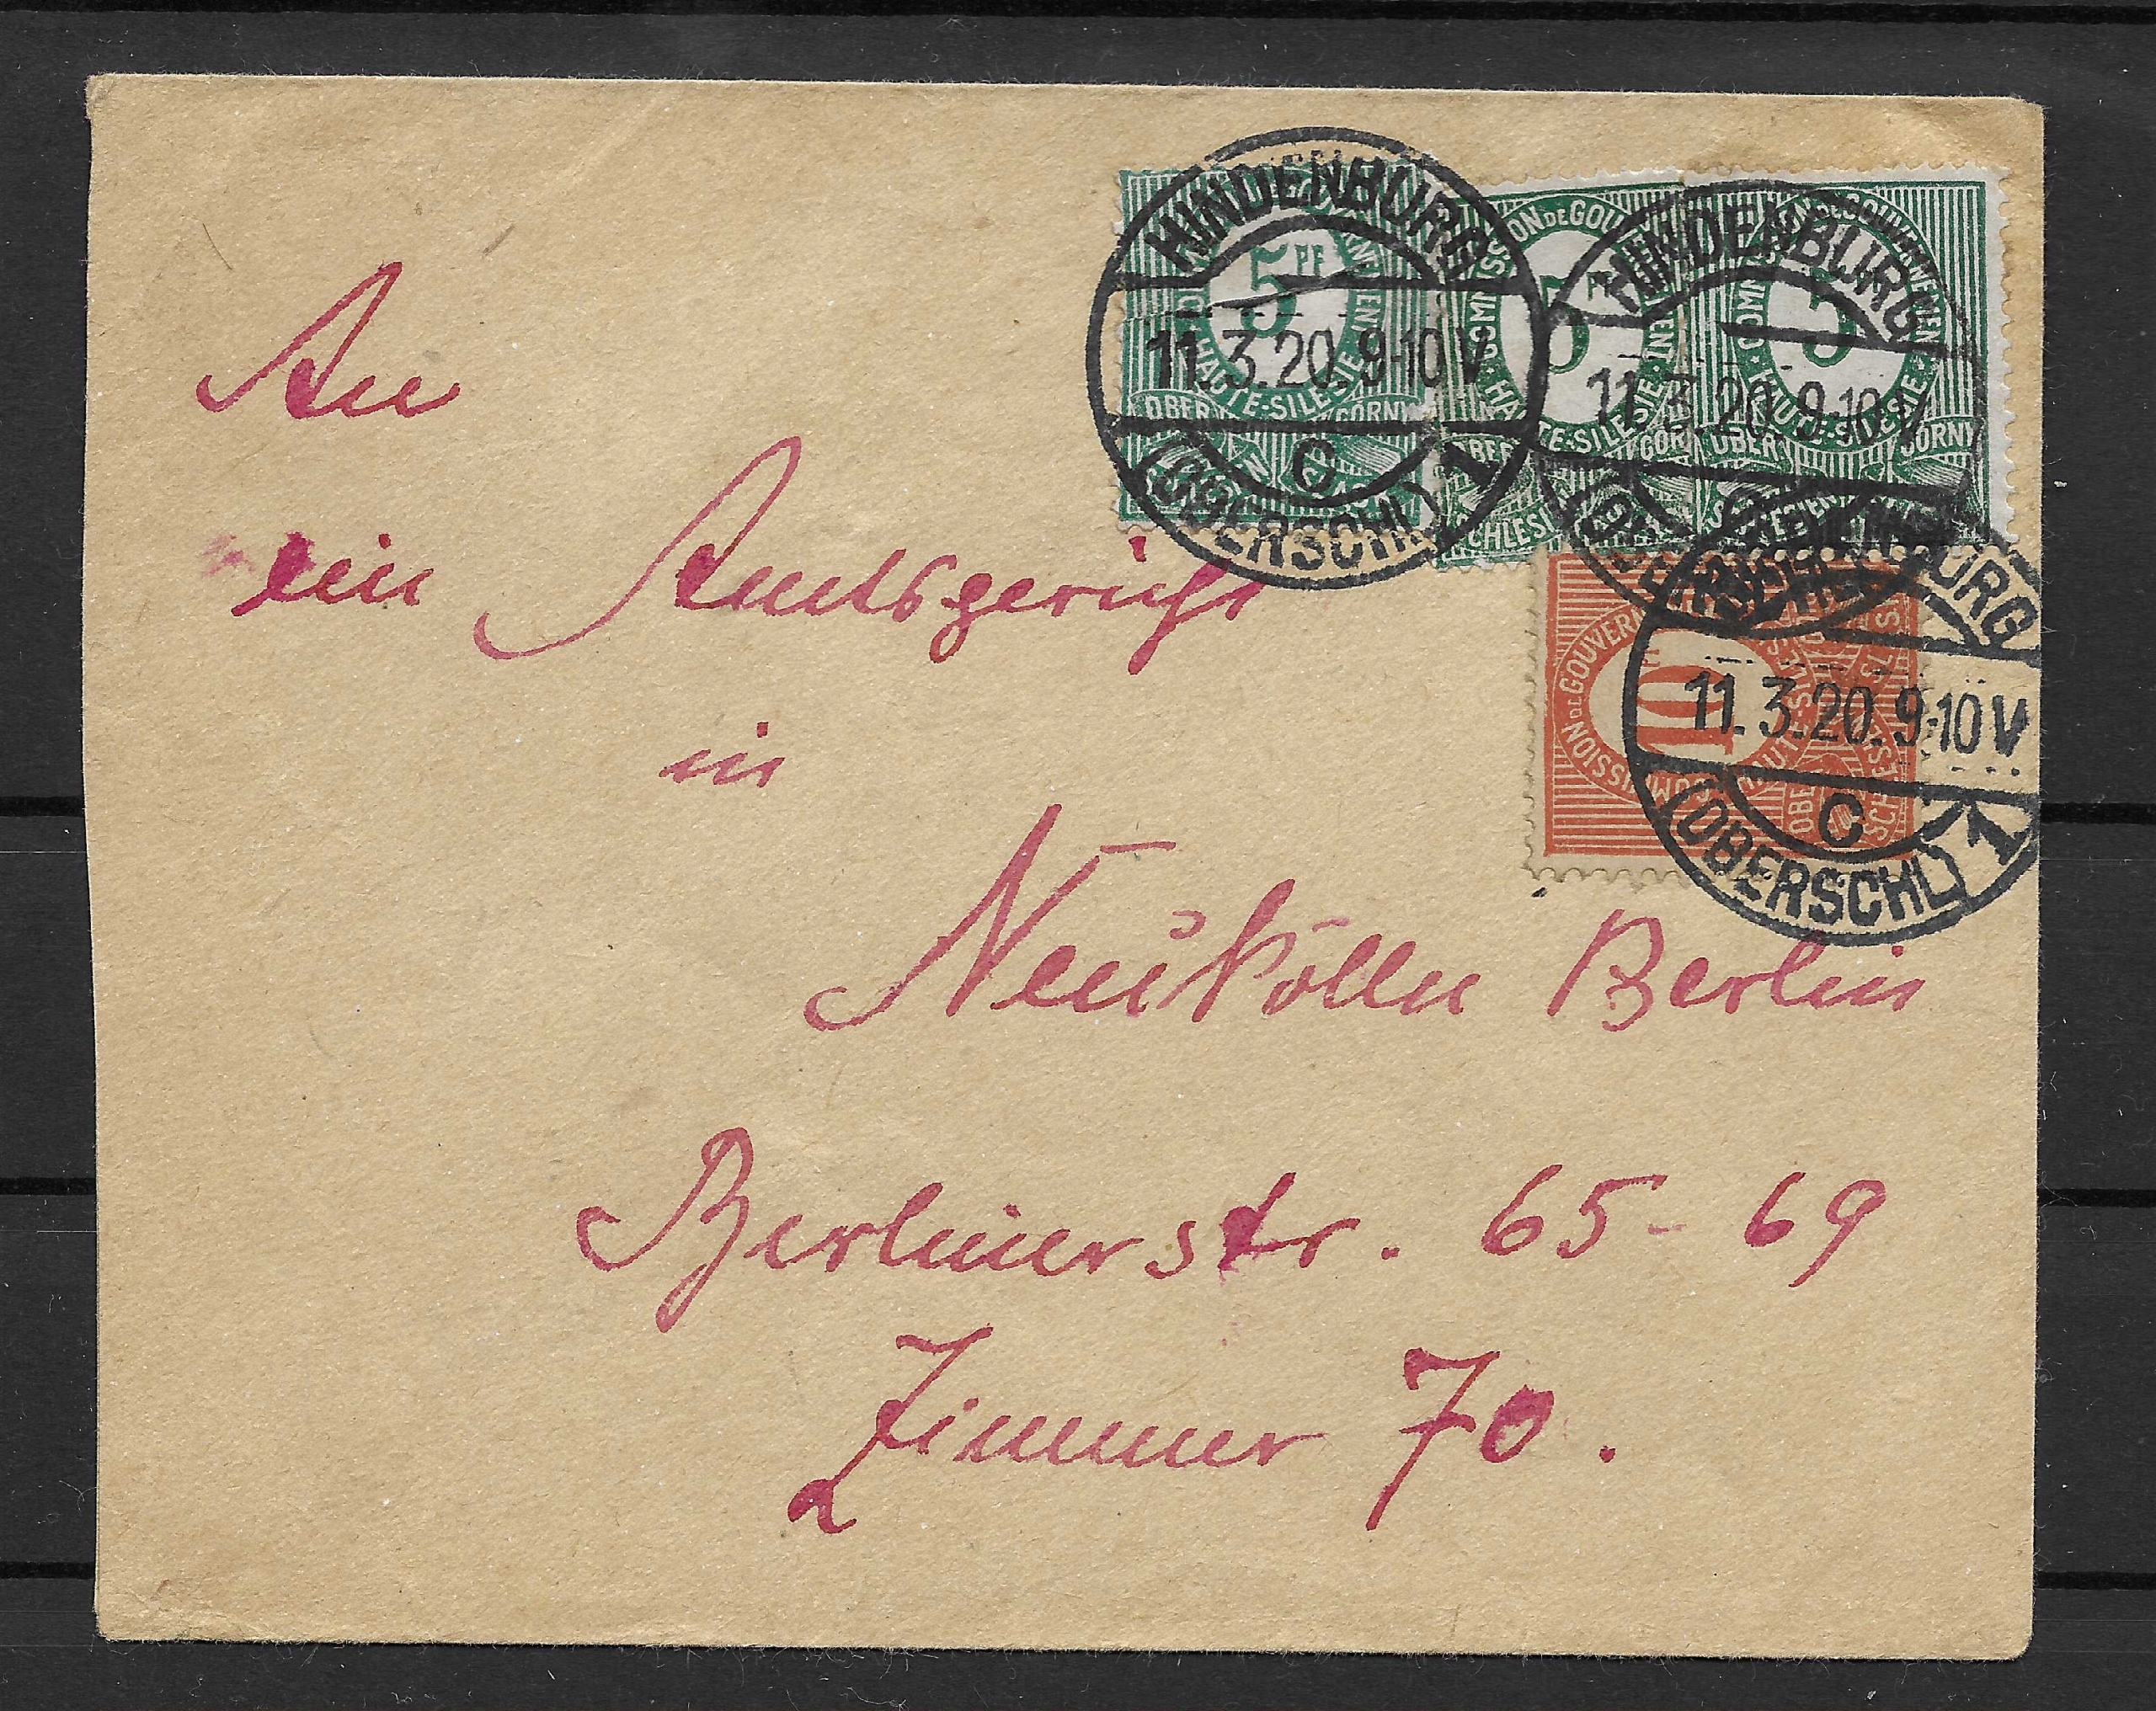 HINDENBURG
11.3.20.9-10V
C
(OBERSCHL) 1
5 PF
HAUTE-SILESIE
OBER GORNY
HINDENBURG
11.3.20.9-10V
5
COMMISSION DE GOUVERNEMENT • HAUTE-SILESIE •
OBER GORNY
SCHLESIEN
HINDENBURG
11.3.20.9-10V
C
(OBERSCHL) 1
10
COMMISSION DE GOUVERN
An
ein Amtsgericht
in
Neukölln Berlin
Berlinerstr. 65-69
Zimmer 70.